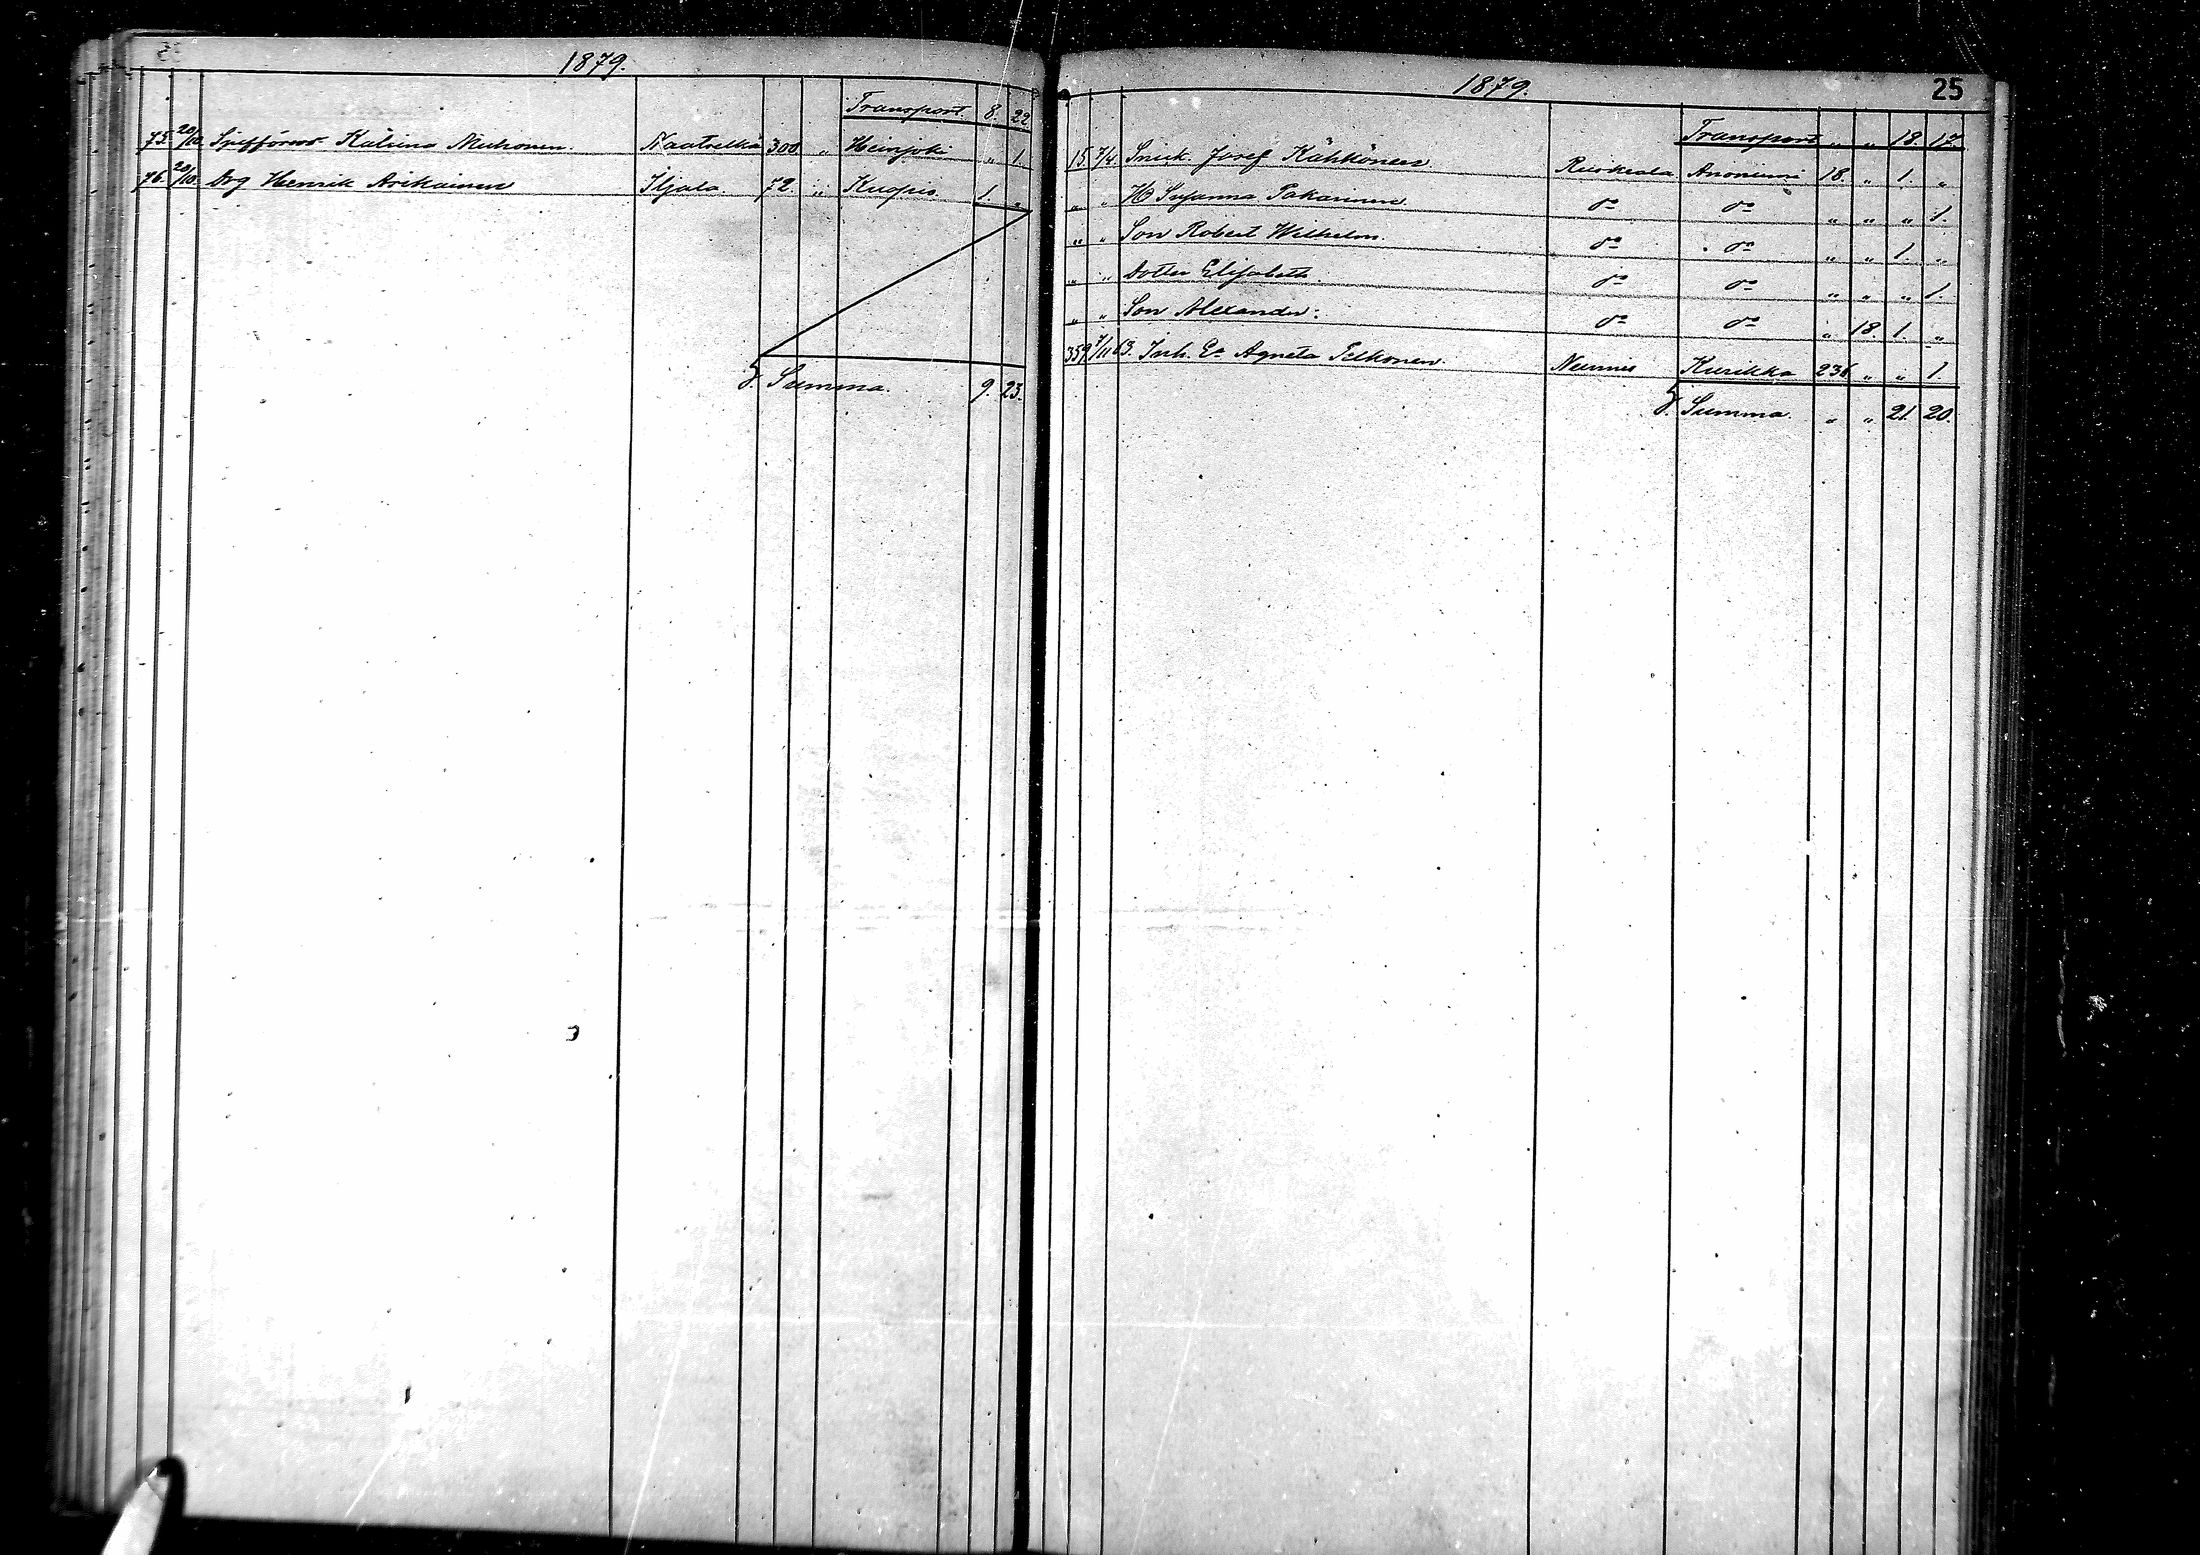 1879.
Transport 8. 22
75. 20/10. Katrina Muhonen. 300 „ Heinjoki „ 1.
76. 20/10. Drg Henrik Asikainen Iljala 72. „ Kuopio. 1. „
S:a Summa. 9. 23.
1879. 25
Transport „ „ 18. 17.
15. 7/4. Snick. Josef Kähkönen Ruskeala Anoniemi 18. „ 1. „
„ „ H Susanna Pakarinen d:o d:o „ „ „ 1.
„ „ Son Robert Wilhelm. d:o d:o „ „ 1. „
„ „ Dotter Elisabeth. d:o d:o „ „ „ 1.
„ „ Son Alexander. d:o d:o „ 18. 1. „
359. 7/11 63. Inh. E:a Agneta Pelkonen. Kurikka 236 „ „ 1.
S:a Summa. „ „ 21. 20.